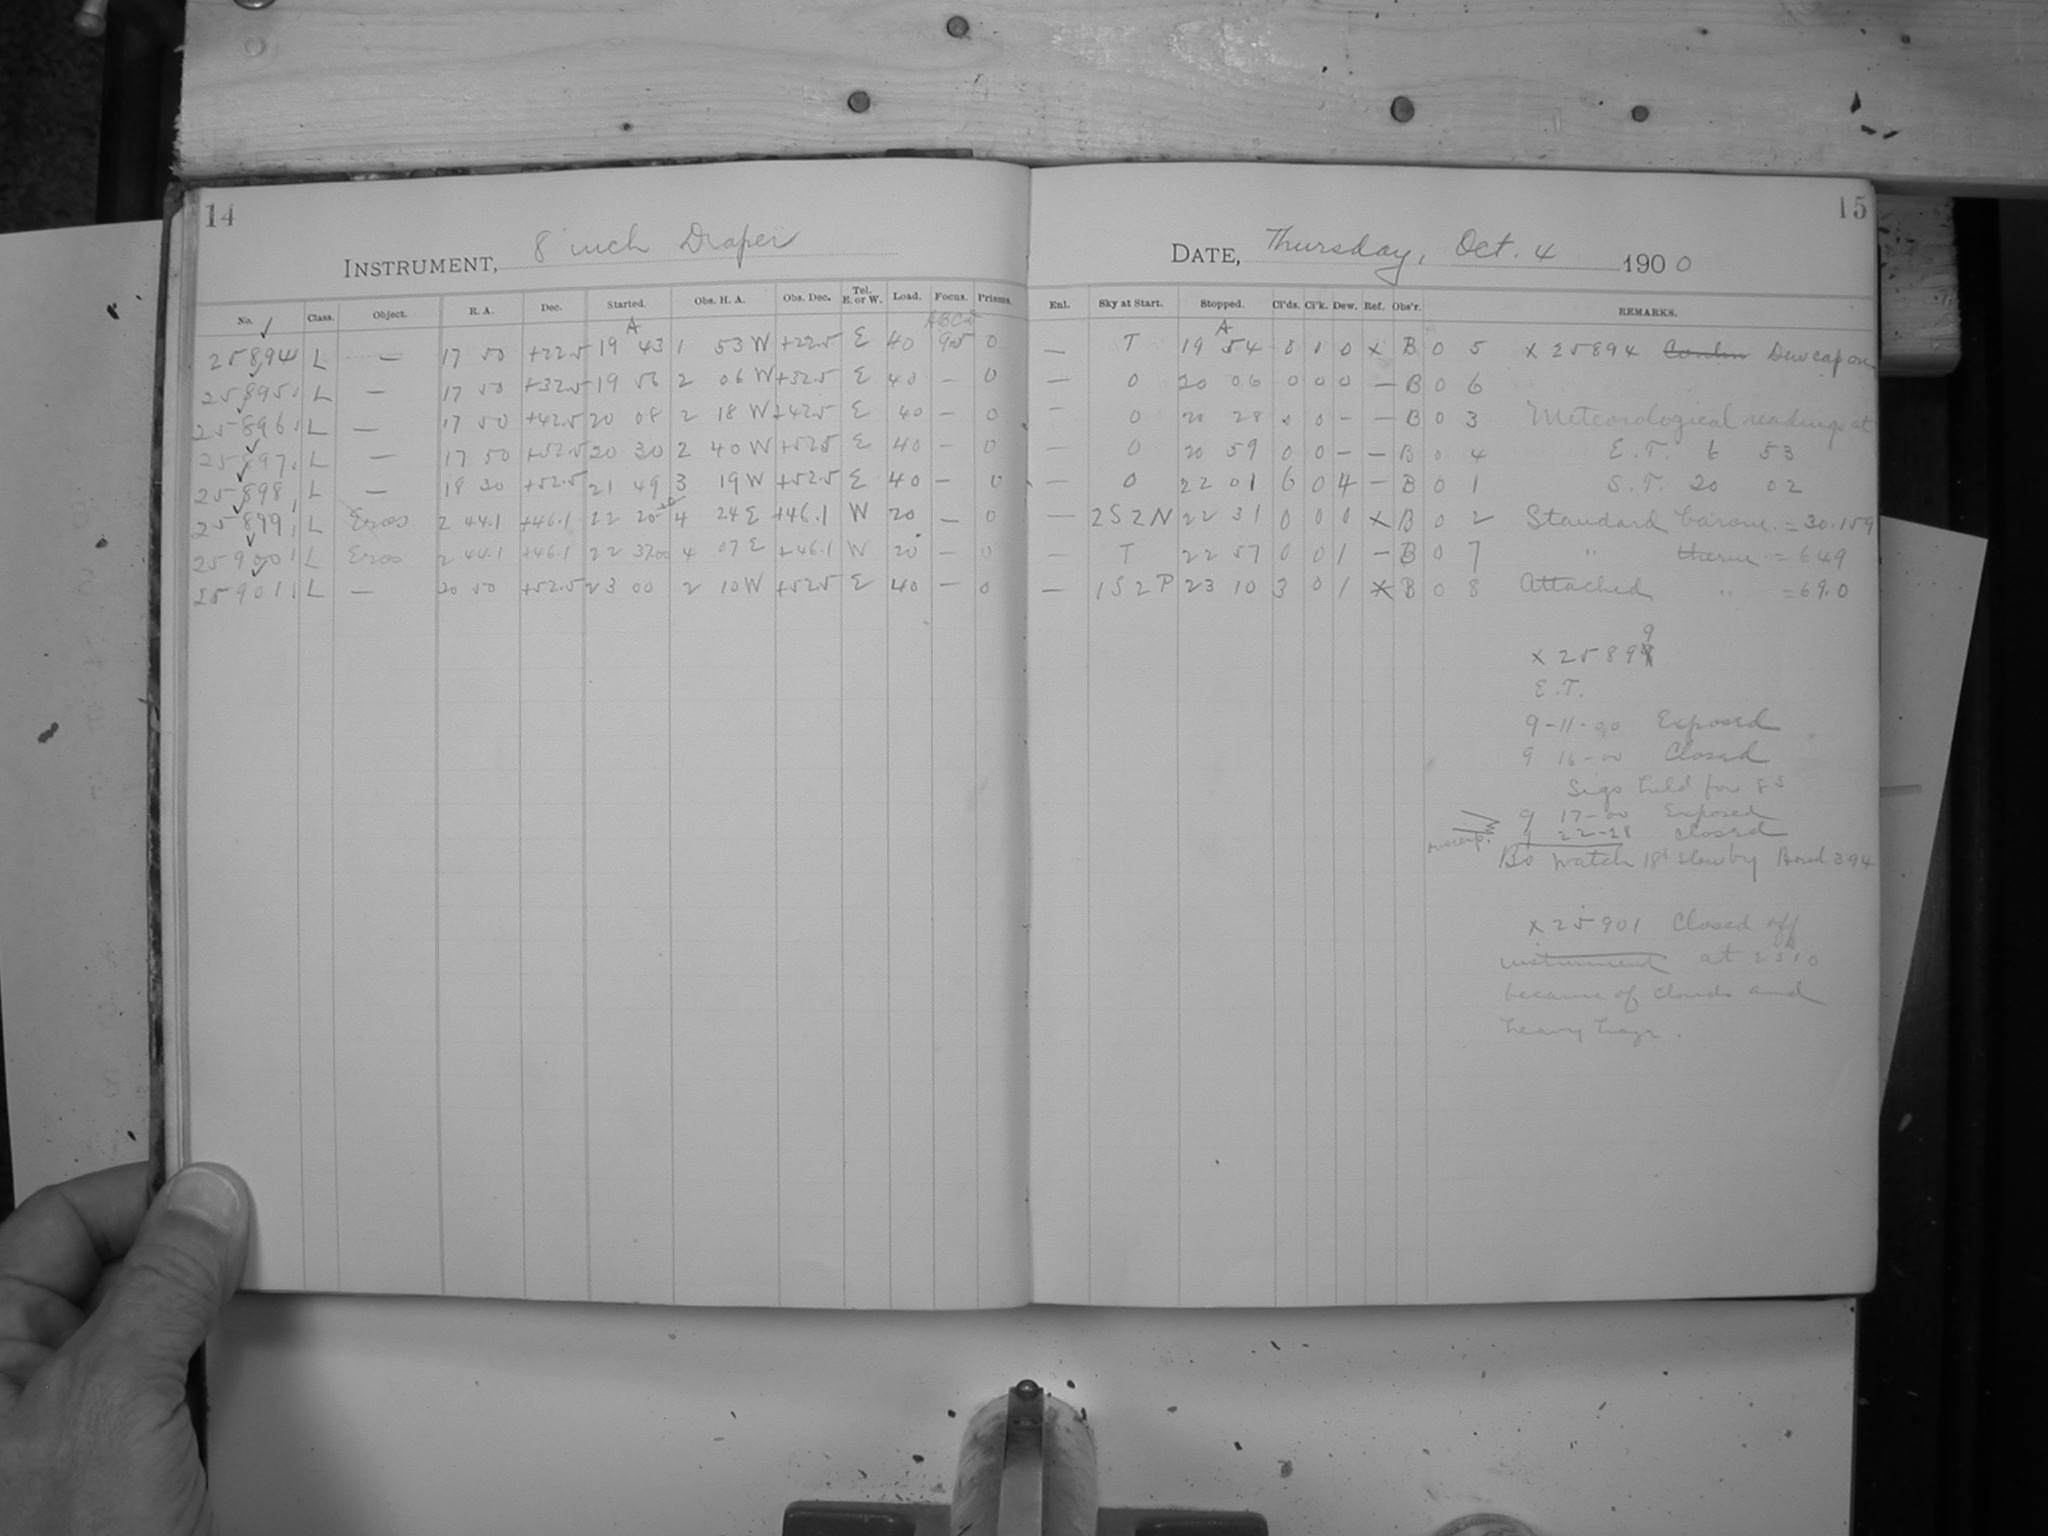 14
INSTRUMENT, 8 inch Draper
No. Class. Object. R. A. Dec. Started. Obs. H. A. Obs. Dec. Tel. E. or W. Load. Focus. Prisms.
25894 L — 17 50 +22.5 19 A 43 1 53 W +22.5 E 40 9.5 0
25895 L — 17 50 +32.5 19 56 2 06 W +32.5 E 40 — 0
25896 L — 17 50 +42.5 20 08 2 18 W +42.5 E 40 — 0
25897 L — 17 50 +52.5 20 30 2 40 W +52.5 E 40 — 0
25898 L — 18 30 +52.5 21 49 3 19 W +52.5 E 40 — 0
25899 L Eros 2 44.1 +46.1 22 20 4 24 E +46.1 W 20 — 0
25900 L Eros 2 44.1 +46.1 22 37 00 4 07 E +46.1 W 20 — 0
25901 L — 20 50 +52.5 23 00 2 10 W +52.5 E 40 — 0
15
DATE, Thursday, Oct. 4 1900
Enl. Sky at Start. Stopped. Cl'ds. Cl'k. Dew. Ref. Obs'r. REMARKS.
— T 19 A 54 0 1 0 x B 0 5 x 25894 Dew cap on
— 0 20 06 0 0 0 — B 0 6
— 0 20 28 0 0 — — B 0 3 Meteorological readings at
— 0 20 59 0 0 — — B 0 4 E.T. 6 53
— 0 22 01 6 0 4 — B 0 1 S.T. 20 02
— 2S2N 22 31 0 0 0 x B 0 2 Standard barom. = 30.159
— T 22 57 0 0 1 — B 0 7 " therm = 649
— 1S2P 23 10 3 0 1 x B 0 8 Attached " = 69.0
x 25899
E.T.
9-11-00 Exposed
9 16-00 Closed
Sigs held for 8s
9 17-00 Exposed
9 22-28 Closed
Bo watch 18s slow by Bond 394
x 25901 Closed off
instrument at 23 10
because of clouds and
heavy haze.